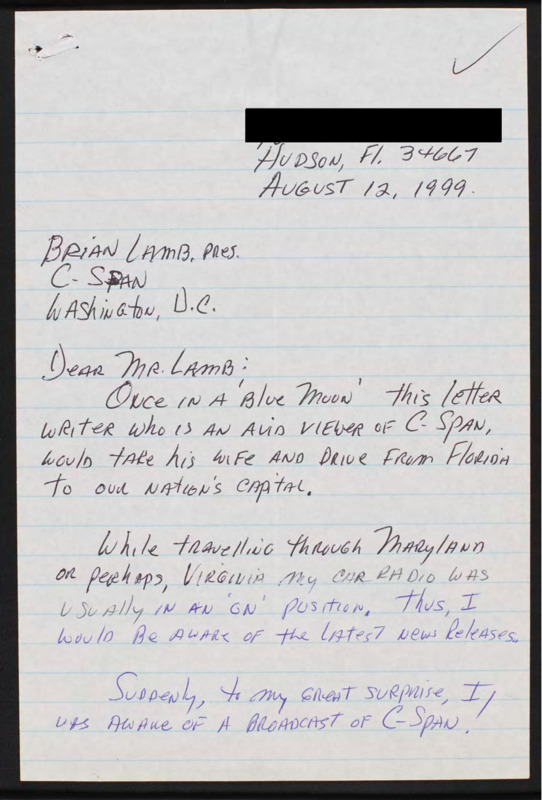 Hudson, Fl. 34667
August 12, 1999.
Brian Lamb, Pres.
C-Span
Washington, D.C.
Dear Mr. Lamb:
Once in a 'Blue Moon' this letter
writer who is an avid viewer of C-Span,
would take his wife and drive from Florida
to our nation's capital.
While travelling through Maryland
or perhaps, Virginia my car radio was
usually in an 'on' position. Thus, I
would be aware of the latest news releases.
Suddenly, to my great surprise, I,
was aware of a broadcast of C-Span!